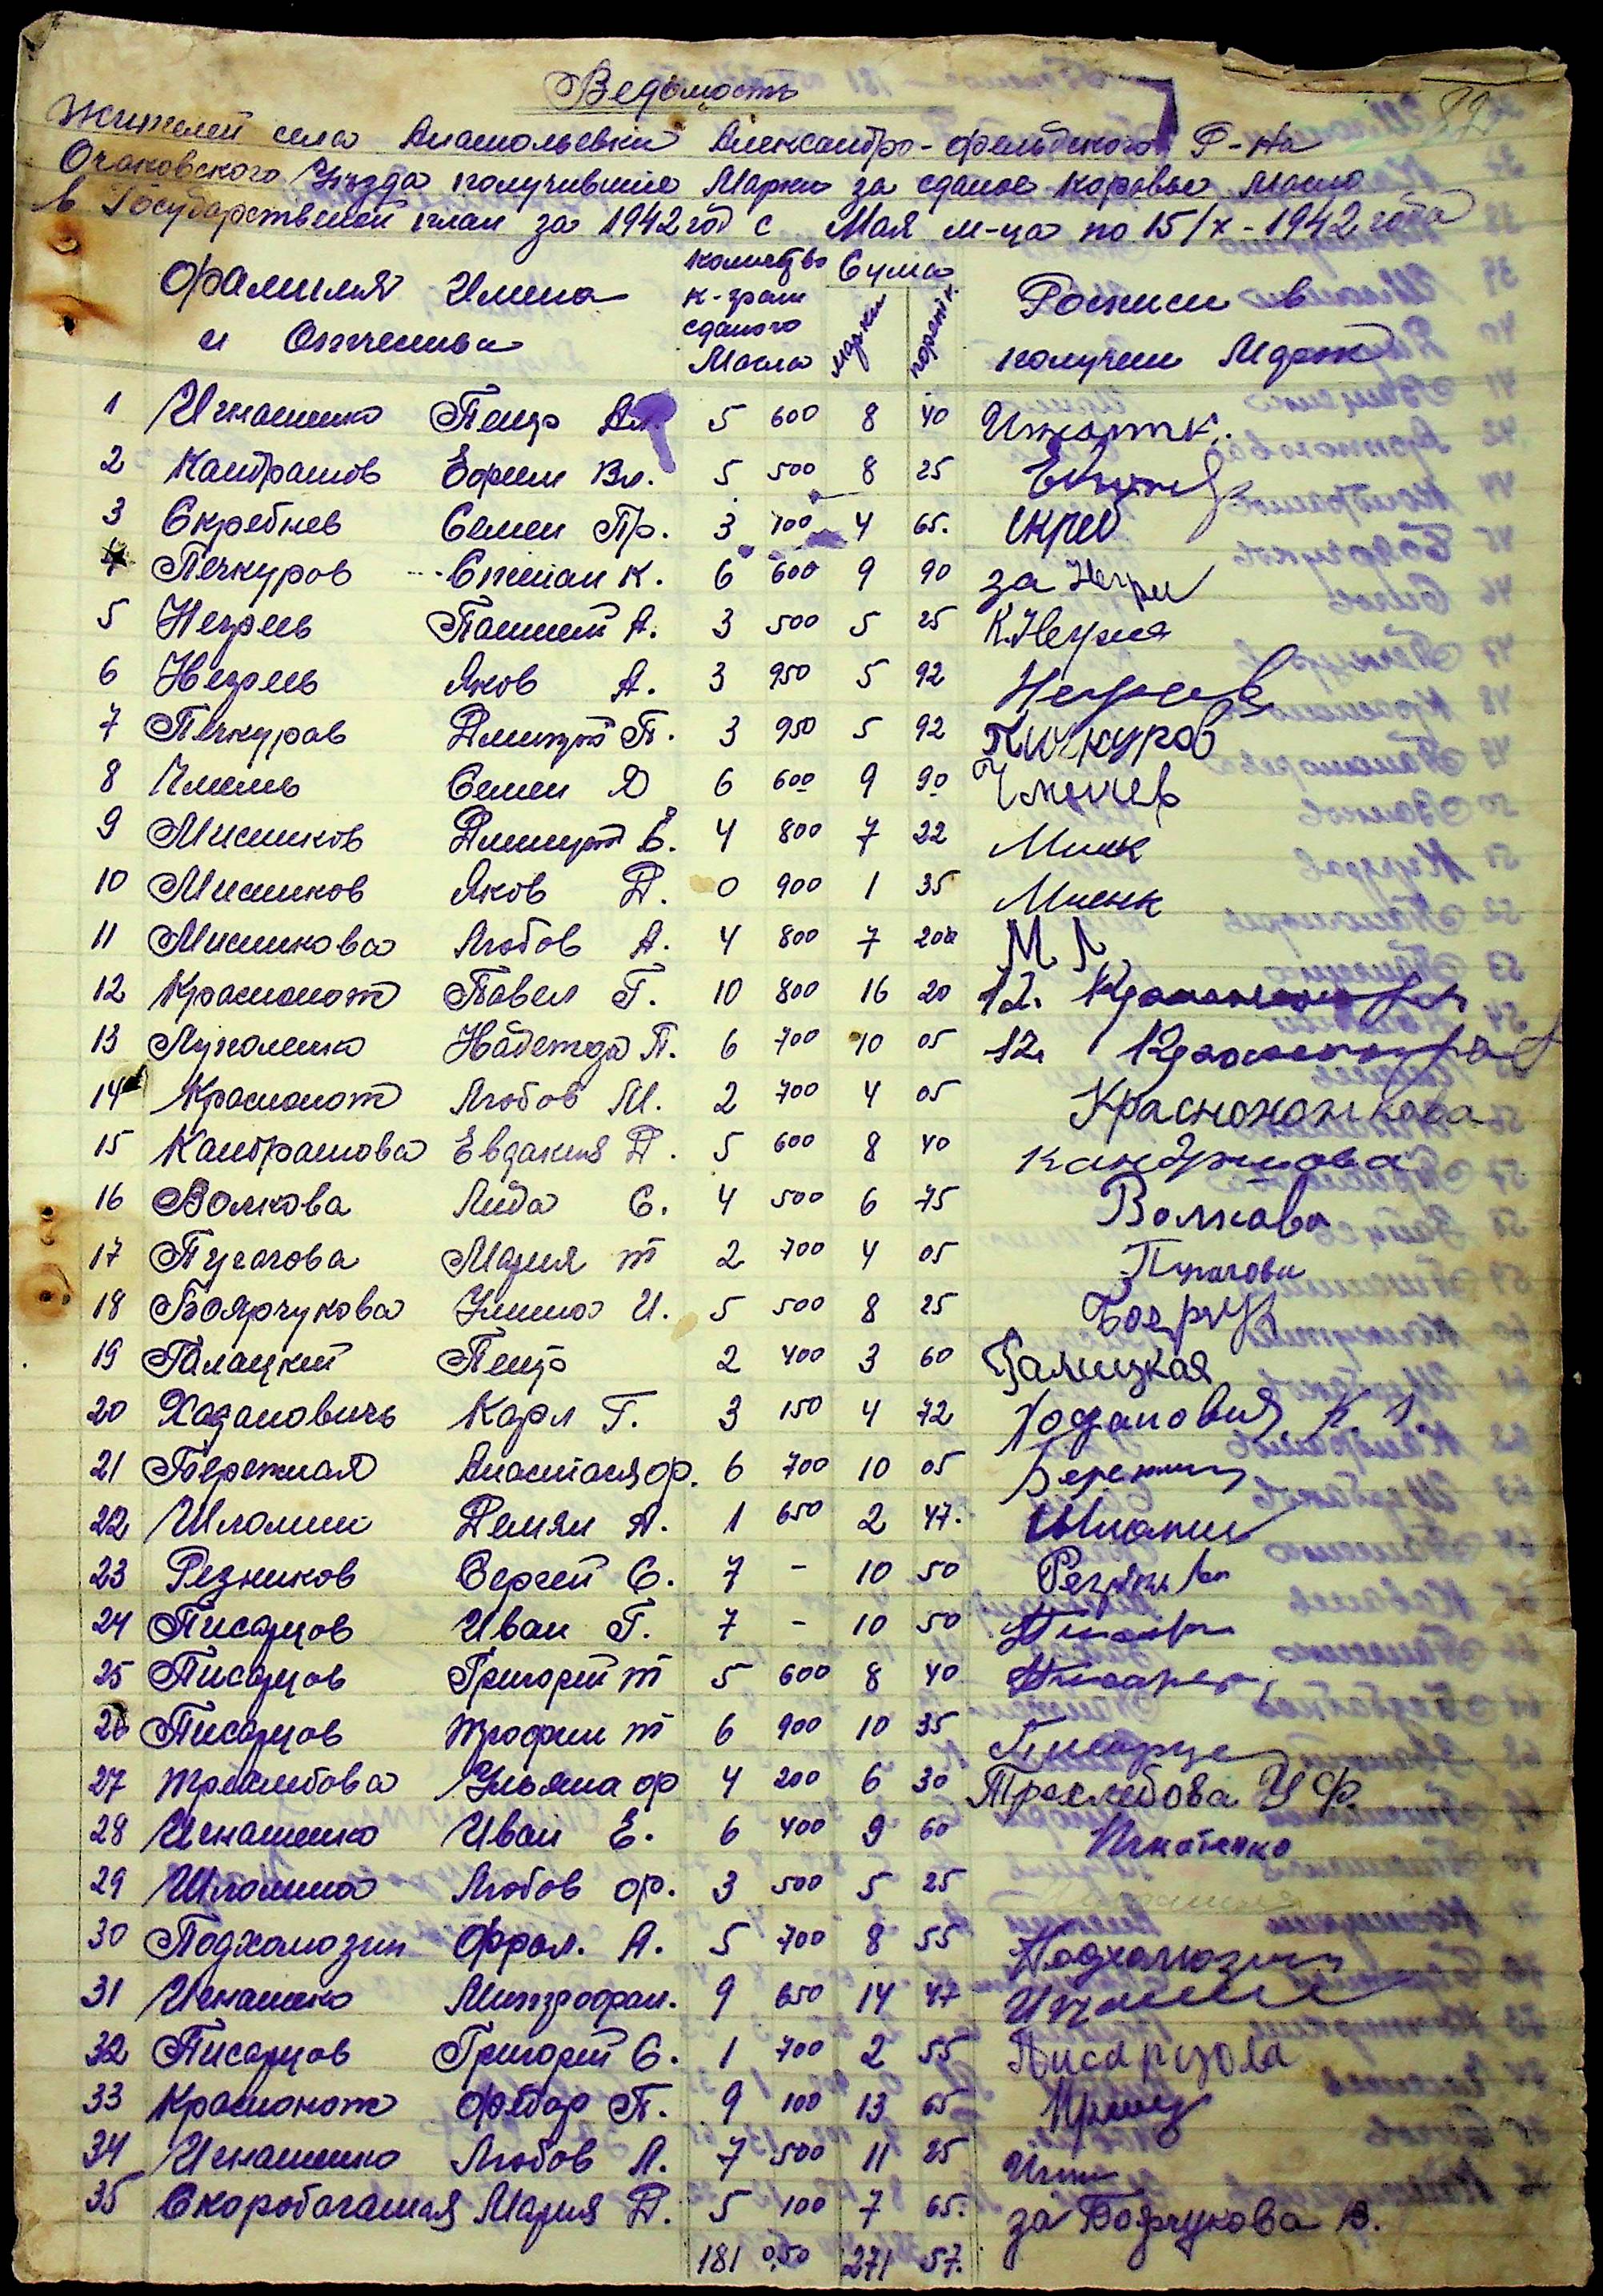 Ведомость
82
Жителей села Анатольевки Александро-фельдского Р-на
Очаковского Уезда получившие Марки за сданое каровье Масло
в Государственой план за 1942 год с Мая м-ца по 15/X-1942 года
Фамилия Имена и Отчества
количство к-грам сданого Масла
Сума
марки
Росписи в получен Марок
1 Игнатенко Петр Ал. 5 600 8 40
2 Кандрашов Ефрем Вл. 5 500 8 25
3 Скребнев Семен Пр. 3 100 4 65. скреб
4 Печкуров Степан К. 6 600 9 90 за Негри
5 Негреев Пантей А. 3 500 5 25 К.Негрея
6 Негреев Яков А. 3 950 5 92 Негреев
7 Печкуров Дмитрий П. 3 950 5 92 Пичкуров
8 Чмелев Семен Д 6 600 9 90 Чмелев
9 Мисников Дмитрий Е. 4 800 7 22 Мисик
10 Мисников Яков Д. 0 900 1 35 Мисник
11 Мисникова Любов А. 4 800 7 20 М Л
12 Красножон Павел Г. 10 800 16 20 12.
13 Луполенко Надежда П. 6 700 10 05 12.
14 Красножон Любов М. 2 700 4 05 Красножонкова
15 Кандрашова Евдакия Д. 5 600 8 40 Кандрашова
16 Волкова Лида С. 4 500 6 75 Волкова
17 Пугачова Мария Т 2 700 4 05 Пугачова
18 Боярчукова Улина И. 5 500 8 25 Боерчук
19 Галацкий Петр 2 400 3 60 Галицкая
20 Хадановичь Карл Г. 3 150 4 72 Ходанович К
21 Бережная Анастасия Ф. 6 700 10 05 Бережная
22 Шломин Демян А. 1 650 2 47. Шломин
23 Резников Сергей С. 7 - 10 50
24 Писарцов Иван Г. 7 - 10 50 Писарц
25 Писарцов Григорий Т 5 600 8 40 Писарев
26 Писарцов Трофим Т 6 900 10 35 Писарце
27 Трехлебова Ульяна Ф 4 200 6 30 Трехлебова У Ф.
28 Игнатенко Иван Е. 6 400 9 60 Игнатенко
29 Шломина Любов Ф. 3 500 5 25
30 Подхамозин Фрол. А. 5 700 8 55 Подхамозин
31 Игнатенко Митрофан. 9 650 14 47
32 Писарцов Григорий С. 1 700 2 55 Писарцова
33 Красножон Федор П. 9 100 13 65
34 Игнатенко Любов Л. 7 500 11 25 Игна
35 Скоробагатая Мария Д. 5 100 7 65. за Боярчукова В.
181 0,50 271 57.